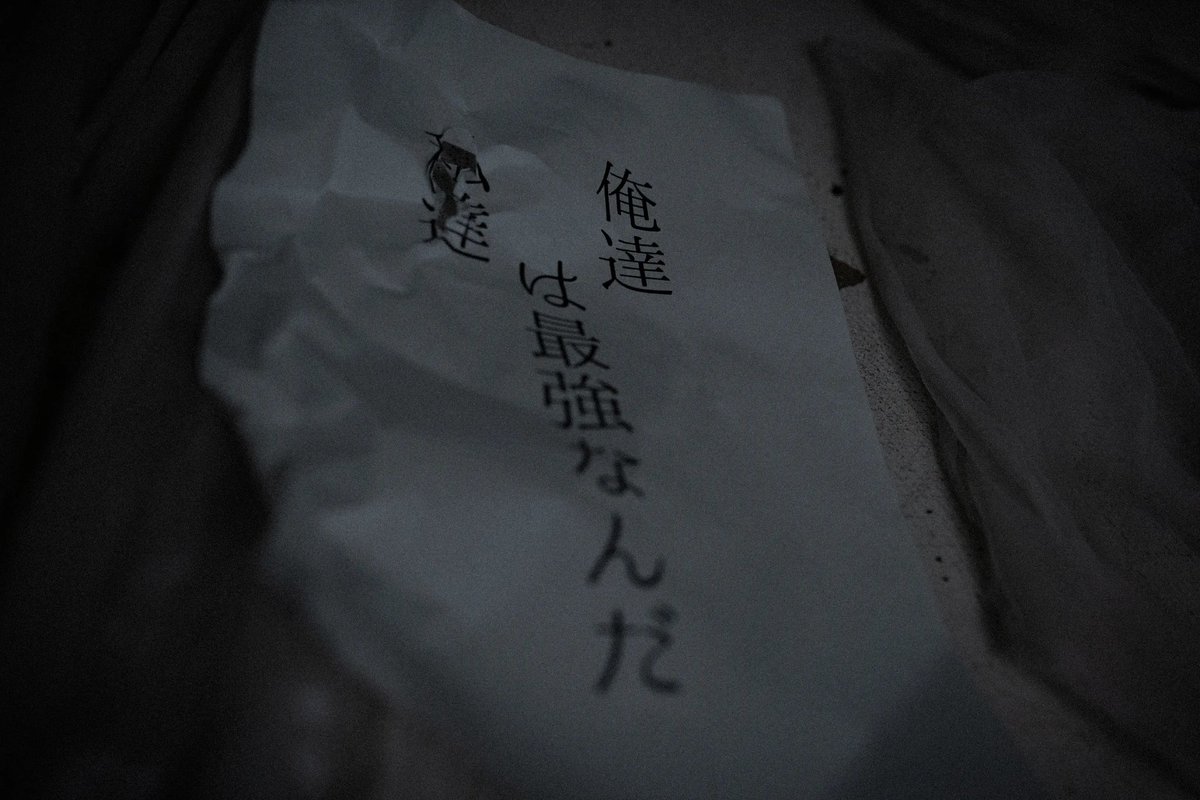 俺達
は最強なんだ
私達